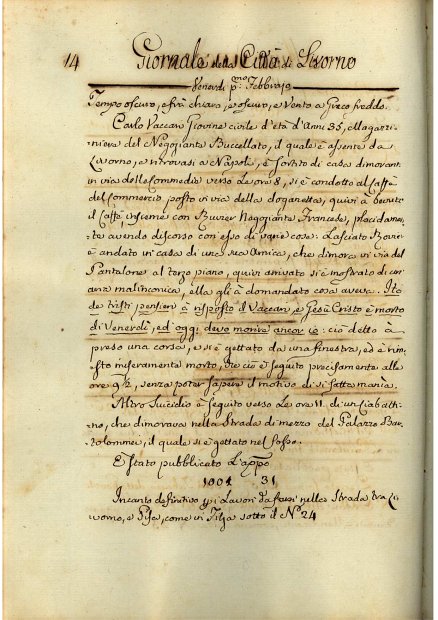 14 Giornale della Città di Livorno
Venerdi pmo Febbraio
Tempo oscuro, e fra chiaro, e oscuro, e Vento a Greco freddo.
Carlo Vaccari Giovine civile d'età d'Anni 35, allagazi-
niere del Negoziante Buccellato, il quale è assente da
Livorno, e ritrovasi a Napoli, è sortito di casa dimorante
in via delle Commedie verso le ore 8, si è condotto al Caffè
del Commercio posto in via della doganetta, quivi à beuto
il Caffè, insieme con Buvier Negoziante Francese, placidamen-
te avendo discorso con esso di varie cose. Lasciato Bovier
è andato in casa di una sua Amica, che dimora in via del
Pantalone al terzo piano, quivi arrivato si è mostrato di cie-
ra malinconica, ella gli à domandato cosa aveva. Ho
de tristi pensieri à risposto il Vaccari, e Gesù Cristo è morto
di Venerdi, ed oggi devo morire ancor io: ciò detto à
preso una corsa, e si è gettato da una finestra, ed è rima-
sto miseramente morto, che ciò è seguito precisamente alle
ore 9½, senza poter sapere il motivo di sì fatta manìa.
Altro Suicidio è seguito verso le ore 11. di un Ciabatti-
no, che dimorava nella Strada di mezzo del Palazzo Bar-
tolommei, il quale si è gettato nel fosso.
È stato pubblicato L'appo
1801 31
Incanto definitivo p i Lavori da farsi nella Strada tra Li-
vorno, e Pisa, come in Filza sotto il N° 24